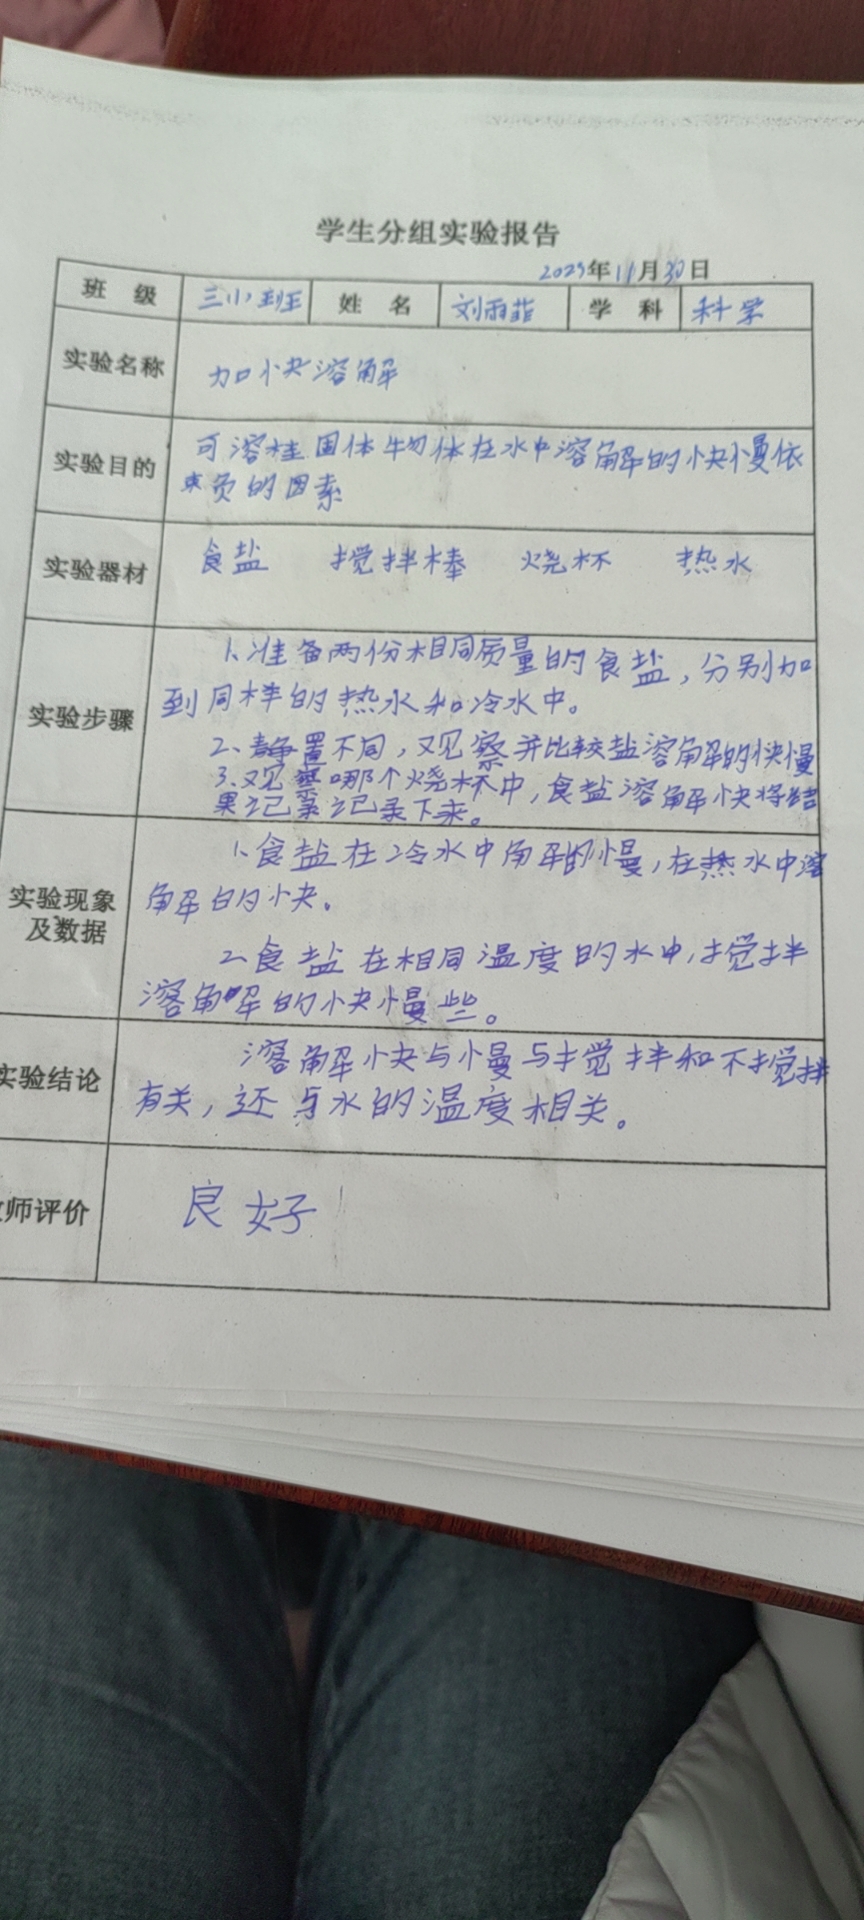 学生分组实验报告
2023年11月30日
班 级 三(1)班 姓 名 刘雨菲 学 科 科学
实验名称 加快溶解
实验目的 可溶桂固体物体在水中溶解的快慢依
负的因素
实验器材 食盐 搅拌棒 烧杯 热水
实验步骤 1、准备两份相同质量的食盐,分别加
到同样的热水和冷水中。
2、静置不同,观察并比较盐溶解的快慢
3.观察哪个烧杯中,食盐溶解快将结
果记录记录下来。
实验现象
及数据
1、食盐在冷水中解的慢,在热水中溶
解的快。
2、食盐在相同温度的水中,搅拌
溶解的快慢些。
实验结论 溶解快与慢与搅拌和不搅拌
有关,还与水的温度相关。
师评价 良好